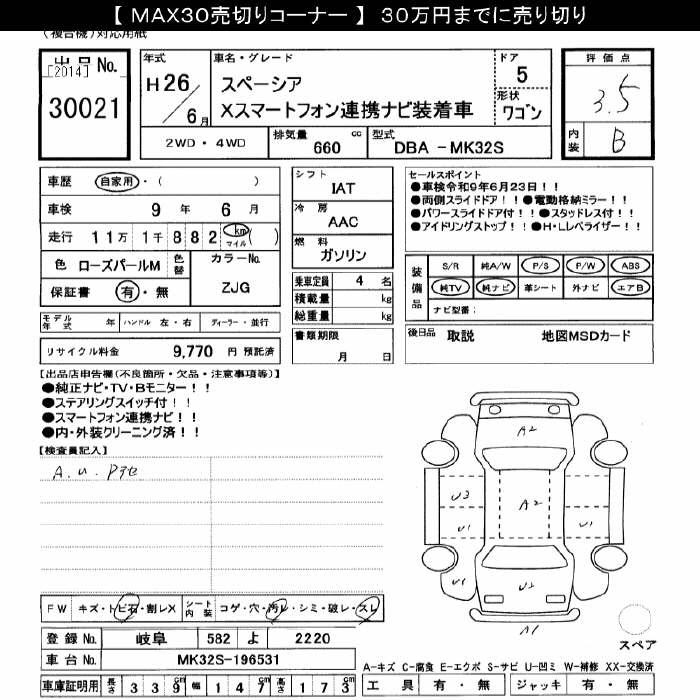 【 MAX30売切りコーナー 】 30万円までに売り切り
（複合機）対応用紙
出品No.
[2014]
30021
年式
H26/6月
車名・グレード
スペーシア
Xスマートフォン連携ナビ装着車
ドア
5
形状
ワゴン
2WD・4WD
排気量 660 cc
型式 DBA - MK32S
評価点
3.5
内装
B
車歴 自家用・( )
車検 9年 6月
走行 11万 1千 882 km マイル ( )
色 ローズパールM 色替
カラーNo.
ZJG
保証書 有・無
モデル年式 年 ハンドル 左・右 ディーラー・並行
リサイクル料金 9,770 円 預託済
シフト
IAT
冷房
AAC
燃料
ガソリン
乗車定員 4 名
積載量 kg
総重量 kg
書類期限
月 日
セールスポイント
●車検令和9年6月23日！！
●両側スライドドア！！●電動格納ミラー！！
●パワースライドドア付！！●スタッドレス付！！
●アイドリングストップ！！●H・Lレベライザー！！
装備品
S/R 純A/W P/S P/W ABS
純TV 純ナビ 革シート 外ナビ エアB
ナビ型番：
後日品 取説 地図MSDカード
【出品店申告欄(不良箇所・欠品・注意事項等)】
●純正ナビ・TV・Bモニター！！
●ステアリングスイッチ付！！
●スマートフォン連携ナビ！！
●内・外装クリーニング済！！
【検査員記入】
A.u.
FW キズ・トビ石・割レX シート内装 コゲ・穴・汚レ・シミ・破レ・スレ
登録No. 岐阜 582 よ 2220
車台No. MK32S-196531
車庫証明用 長さ 339cm 幅 147cm 高さ 173cm
A2
A2
U3
U1
U1
U1
U2
U1
A1
スペア
A-キズ C-腐食 E-エクボ S-サビ U-凹ミ W-補修 XX-交換済
工具 有・無 ジャッキ 有・無